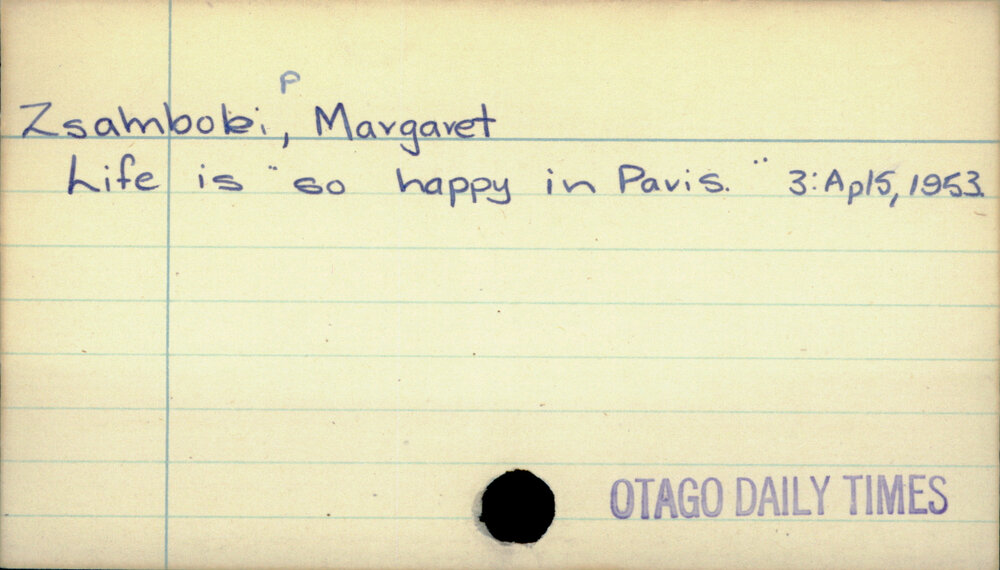 P
Zsamboki, Margaret
Life is "so happy in Paris." 3:Ap15,1953.
OTAGO DAILY TIMES